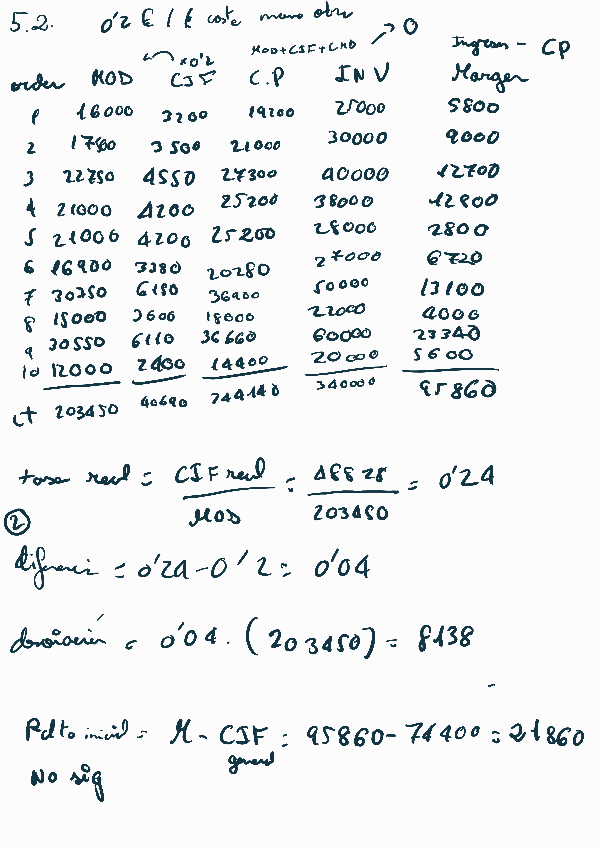 5.2. 0'2 € / € coste mano obra
MOD+CIF+CMD → 0
order MOD ×0'2 CIF C.P INV Ingresos - CP Margen
1 16000 3200 19200 25000 5800
2 17500 3500 21000 30000 9000
3 22750 4550 27300 40000 12700
4 21000 4200 25200 38000 12800
5 21000 4200 25200 28000 2800
6 16900 3380 20280 27000 6720
7 30750 6150 36900 50000 13100
8 15000 3600 18000 22000 4000
9 30550 6110 36660 60000 23340
10 12000 2400 14400 20000 5600
CT 203450 40690 244140 340000 95860
tasa real = CIF real / MOD = 48828 / 203450 = 0'24
②
diferencia = 0'24 - 0'2 = 0'04
desviación = 0'04 · (203450) = 8138
Rdto inicial = M - CIF general = 95860 - 74400 = 21860
No sig